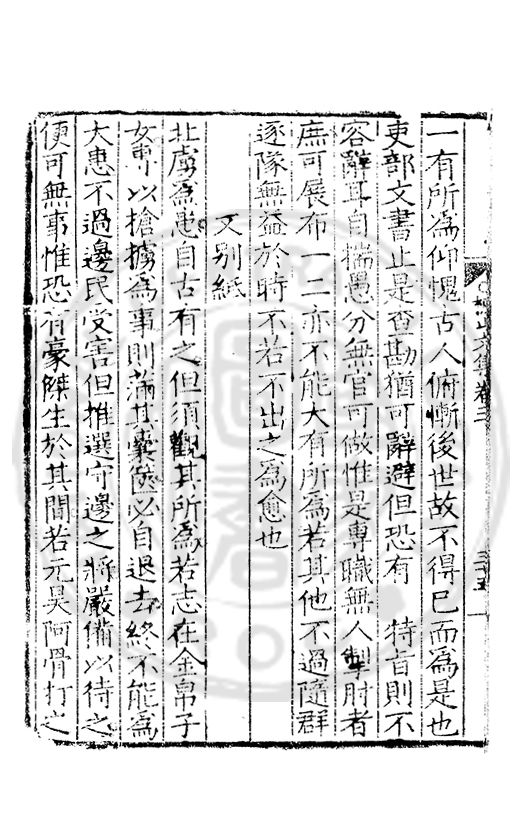 一有所爲仰愧古人俯慚後世故不得已而爲是也
吏部文書止是查勘猶可辭避但恐有　特旨則不
容辭耳自揣愚分無官可做惟是專職無人掣肘者
庶可展布一二亦不能大有所爲若其他不過隨群
逐隊無益於時不若不出之爲愈也
又别紙
北虜爲患自古有之但須觀其所爲若志在金帛子
女專以搶擄爲事則滿其囊篋必自退去終不能爲
大患不過邊民受害但推選守邊之將嚴備以待之
便可無事惟恐有豪傑生於其間若元昊阿骨打之